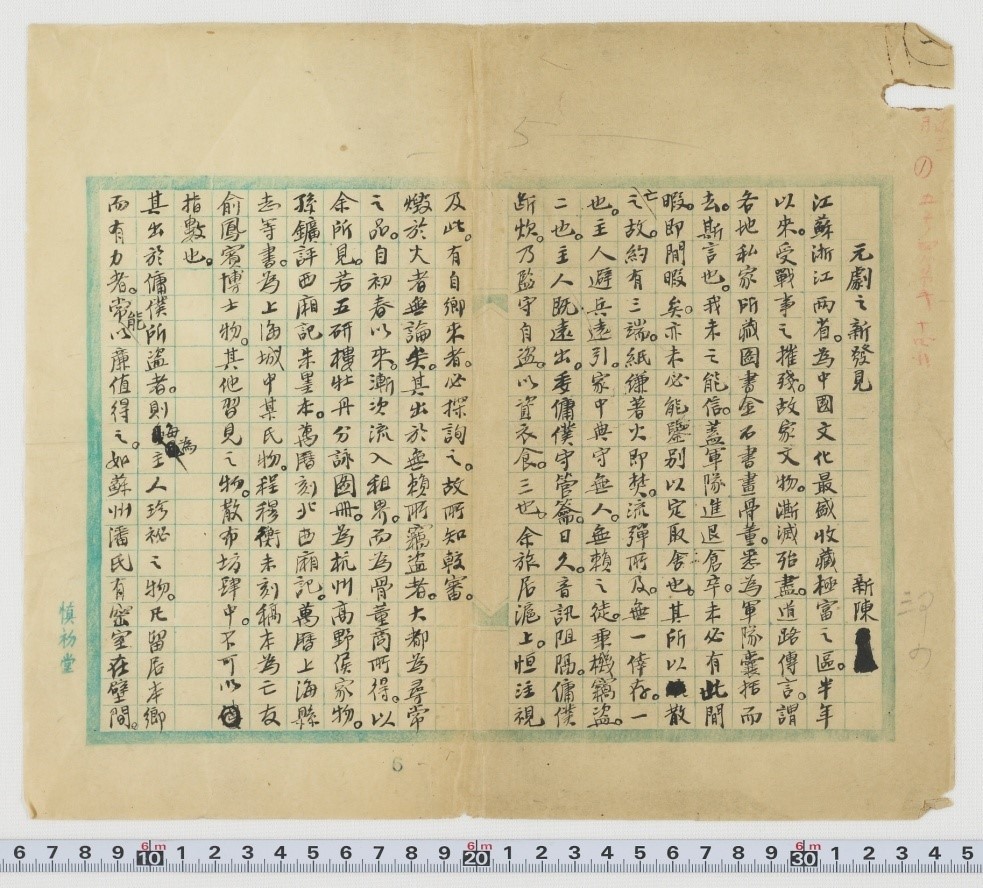 元劇之新發見
新陳
江蘇浙江兩省。為中國文化最盛收藏極富之區。半年
以來。受戰事之摧殘。故家文物。澌滅殆盡。道路傳言。謂
各地私家所藏圖書金石書畫骨董。悉為軍隊囊括而
去。斯言也。我未之能信。蓋軍隊進退倉卒。未必有此閒
暇。即閒暇矣。亦未必能鑒別以定取舍也。其所以散
亡之故。約有三端。紙縑著火即焚。流彈所及。無一倖存。一
也。主人避兵遠引。家中典守無人。無賴之徒。乘機竊盜。
二也。主人既遠出。委傭僕守管籥。日久。音訊阻隔。傭僕
斷炊。乃監守自盜。以資衣食。三也。余旅居滬上。恒注視
及此。有自鄉來者。必探詢之。故所知較審。
燬於火者無論矣。其出於無賴所竊盜者。大都為尋常
之品。自初春以來。漸次流入租界。而為骨董商所得。以
余所見。若五研樓牡丹分詠圖冊。為杭州高野侯家物。
孫鑛評西廂記朱墨本。萬曆刻北西廂記。萬曆上海縣
志等書。為上海城中某氏物。程穆衡未刻稿本為亡友
俞鳳賓博士物。其他習見之物。散布坊肆中。不可以
指數也。
其出於傭僕所盜者。則為主人珍祕之物。凡留居本鄉
而有力者。常能以廉值得之。如蘇州潘氏有密室在壁間。
慎初堂
6